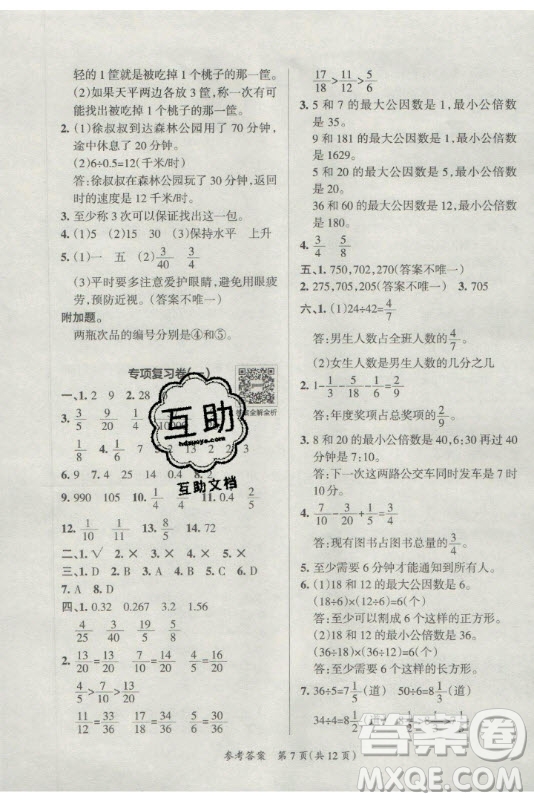 轻的1筐就是被吃掉1个桃子的那一筐。
(2)如果天平两边各放3筐,称一次有可能找出被吃掉1个桃子的那一筐。
2. (1)徐叔叔到达森林公园用了70分钟,
途中休息了20分钟。
(2)6÷0.5=12(千米/时)
答:徐叔叔在森林公园玩了30分钟,返回时的速度是12千米/时。
3. 至少称3次可以保证找出这一包。
4. (1)5 15 30 (3)保持水平 上升
5. (1)一 五 (2)3/40
(3)平时要多注意爱护眼睛,避免使用电子产品,预防近视。(答案不唯一)
附加题。
两瓶次品的编号分别是④和⑤。
专项复习卷(一)
一、1. 2 9 2. 28
3. 3/5 19/100 1/4
1/8 1/6
6. 9 9 4 25 0.4
9. 990 10. 1/4 11. 0.4
12. 1/10 1/11 13. 5/8 14. 72
二、1. √
三、1. D 2. B 3. D 4. A 5. B
四、1. 0.32 0.267 3.2 1.56
4/25 3/5 33/40 19/20
2. 13/20=13/20 13/20>12/20
13/20>13/20>12/20
18/36 22/36 33/36
17/18>11/12>5/6
3. 5和7的最大公因数是1,最小公倍数是35。
9和181的最大公因数是1,最小公倍数是1629。
5和25的最大公因数是5,最小公倍数是25。
36和60的最大公因数是12,最小公倍数是180。
4. 3/4 5/8
五、1. 750,702,270(答案不唯一)
2. 275,705,205(答案不唯一) 3. 705
六、1. (1)24÷42=4/7
答:男生人数占全班人数的4/7。
(2)女生人数是男生人数的3/4。
答:年度奖项占总奖项的2/9。
3. 8和20的最小公倍数是40,6:30再过40分钟是7时10分。
答:下一次这两路公交车同时发车是7时10分。
4. 7/10-3/20+1/5=3/4
答:现有图书占图书总量的3/4。
5. 至少需要6分钟才能通知到所有人。
6. (1)18和12的最大公因数是6。
(18÷6)×(12÷6)=6(个)
答:至少可以割成6个这样的正方形。
(2)18和12的最小公倍数是36。
(36÷18)×(36÷12)=6(个)
答:至少需要6个这样的长方形。
7. 36÷5=7 1/5(道) 50÷6=8 1/3(道)
34÷4=8 1/2(道)
参考答案 第7页(共12页)
互助
hdzuoye.com
互助文档
答案圈
MXQE.COM